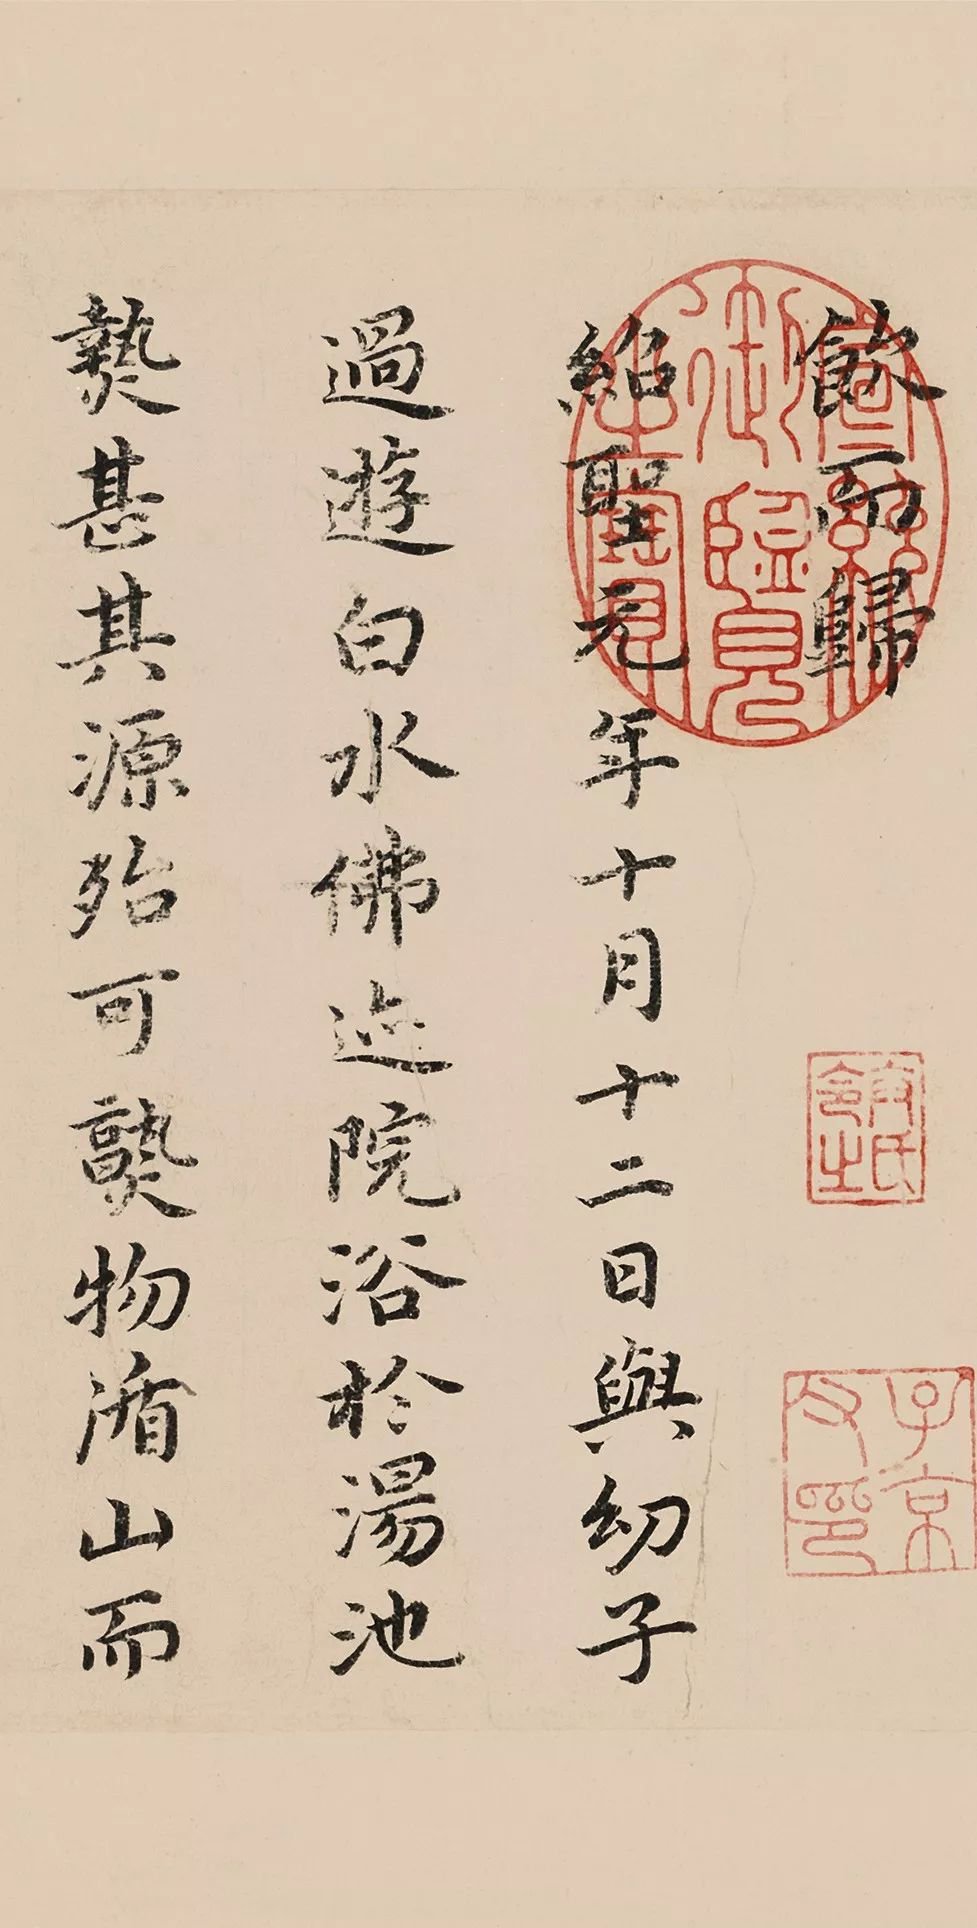 飲而歸
紹聖元年十月十二日與幼子
過遊白水佛迹院浴於湯池
熱甚其源殆可熟物循山而
宣統御覽之寶
子京父印